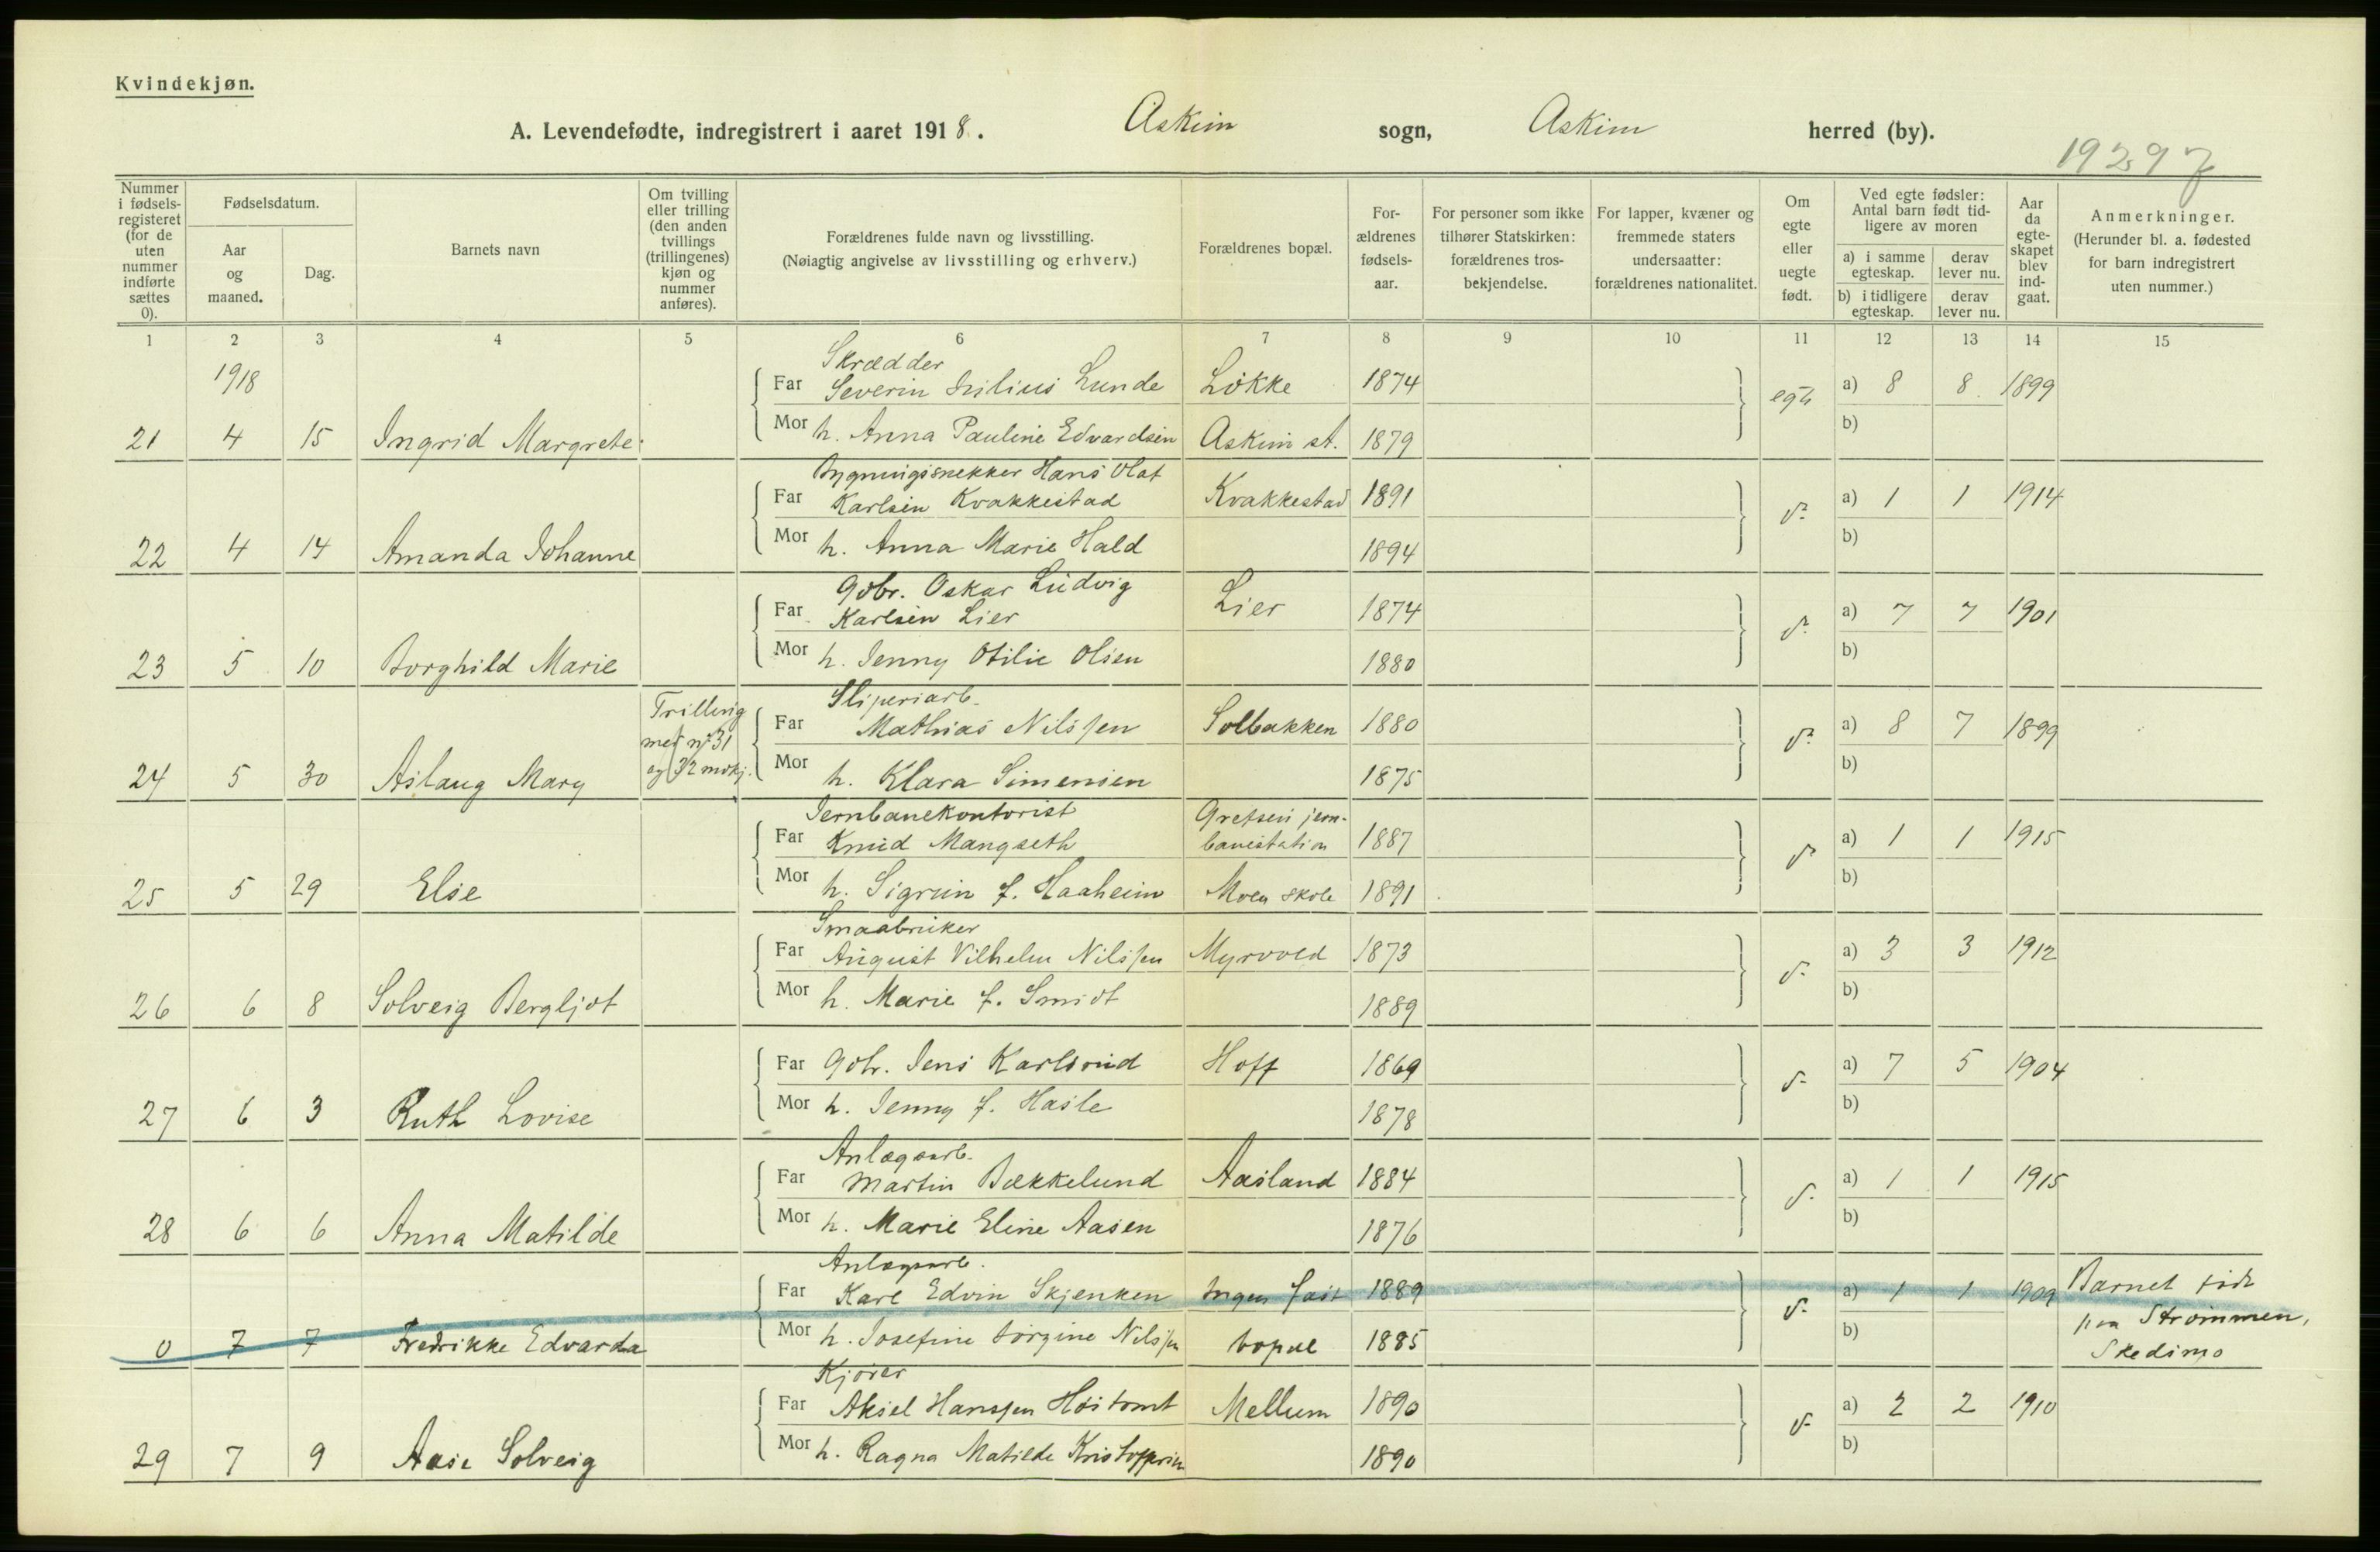 Kvindekjøn.
A. Levendefødte, indregistrert i aaret 1918. Askim sogn, Askim herred (by).
19297
Nummer i fødselsregisteret (for de uten nummer indførte sættes 0).
Fødselsdatum.
Aar og maaned.
Dag.
Barnets navn
Om tvilling eller trilling (den anden tvillings (trillingenes) kjøn og nummer anføres).
Forældrenes fulde navn og livsstilling.
(Nøiagtig angivelse av livsstilling og erhverv.)
Forældrenes bopæl.
For-ældrenes fødsels-aar.
For personer som ikke tilhører Statskirken: forældrenes tros-bekjendelse.
For lapper, kvæner og fremmede staters undersaatter: forældrenes nationalitet.
Om egte eller uegte født.
Ved egte fødsler: Antal barn født tid-ligere av moren
a) i samme egteskap.
derav lever nu.
b) i tidligere egteskap.
derav lever nu.
Aar da egte-skapet blev ind-gaat.
Anmerkninger.
(Herunder bl. a. fødested for barn indregistrert uten nummer.)
1 2 3 4 5 6 7 8 9 10 11 12 13 14 15
1918
Skrædder
Far Severin Julius Lunde Løkke 1874 egte a) 8 8 1899
21 4 15 Ingrid Margrete Mor h. Anna Pauline Edvardsen Askim st. 1879 b)
Bygningssnekker Hans Olaf
Far Karlsen Kvakkestad Kvakkestad 1891 a) 1 1 1914
22 4 14 Amanda Johanne Mor h. Anna Marie Hald 1894 b)
Gbr. Oskar Ludvig
Far Karlsen Lier Lier 1874 a) 7 7 1901
23 5 10 Borghild Marie Mor h. Jenny Otilie Olsen 1880 b)
Trilling med nr 31 og 32 mdkj.
Sliperiarb.
Far Mathias Nilssen Solbakken 1880 a) 8 7 1899
24 5 30 Aslaug Mary Mor h. Klara Simensen 1875 b)
Jernbanekontorist
Far Knud Mangseth Gretsen jern-banestation 1887 a) 1 1 1915
25 5 29 Else Mor h. Sigrun f. Haaheim Moen skole 1891 b)
Smaabruker
Far August Vilhelm Nilssen Myrvold 1873 a) 3 3 1912
26 6 8 Solveig Bergljot Mor h. Marie f. Smidt 1889 b)
Far Gbr. Jens Karlsrud Hoff 1869 a) 7 5 1904
27 6 3 Ruth Lovise Mor h. Jenny f. Hasle 1878 b)
Anlægsarb.
Far Martin Bækkelund Aasland 1884 a) 1 1 1915
28 6 6 Anna Matilde Mor h. Marie Eline Aasen 1876 b)
Anlægsarb.
Far Karl Edvin Skjenken Ingen fast 1889 a) 1 1 1909 Barnet født
0 7 7 Fredrikke Edvarda Mor h. Josefine Jørgine Nilssen bopæl 1885 b) paa Strømmen, Skedsmo
Kjører
Far Aksel Hanssen Høitomt Mellum 1890 a) 2 2 1910
29 7 9 Aase Solveig Mor h. Ragna Matilde Kristoffersen 1890 b)